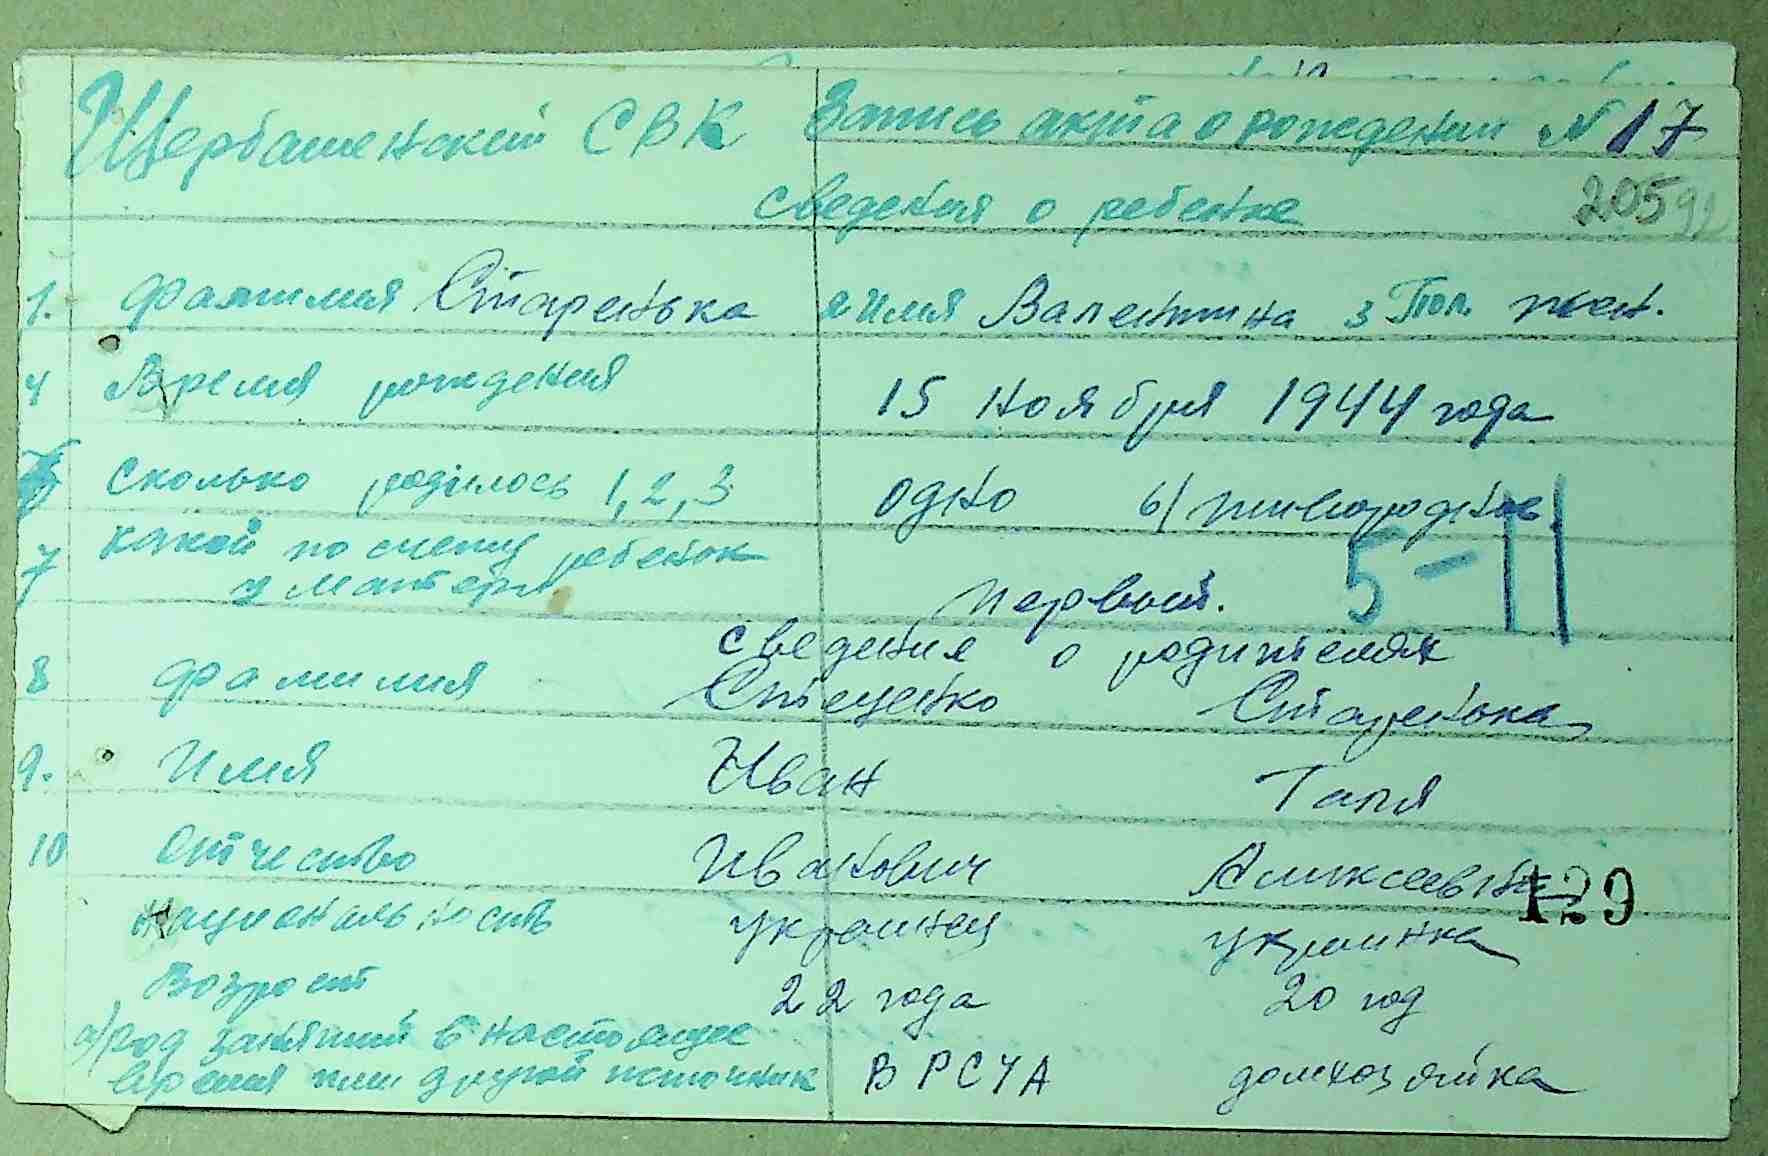 Щербашенский СВК Запись акта о рождении № 17
сведения о ребенке 205 92
1. Фамилия Старенька 2 имя Валентина 3 Пол. жен.
4 Время рождения 15 ноября 1944 года
5 сколько родилось 1, 2, 3 одно 6/ живорожден.
7 какой по счету ребенок у матери первый. 5-11
сведения о родителях
8 фамилия Стеценко Старенька
9. Имя Иван Галя
10 отчество Иванович Аликсеевна 129
национальность украинец украинка
Возраст 22 года 20 год
а/ род занятий в настоящее
время или другой источник В РСЧА домхозяйка